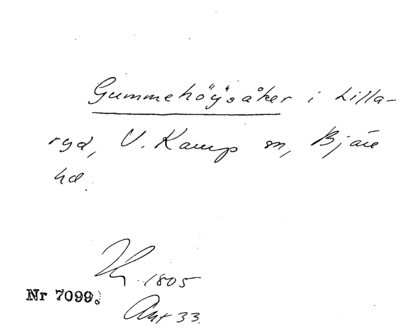 Gummehöjsåker i Lilla-
ryd, V. Karup sn, Bjäre
hd.
1805
Nr 7099.
Akt 33.